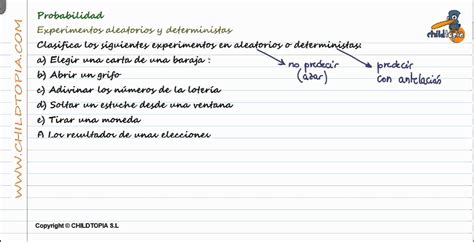 Probabilidad
Experimentos aleatorios y deterministas
Clasifica los siguientes experimentos en aleatorios o deterministas:
a) Elegir una carta de una baraja :
no predecir
(azar)
predecir
con antelación
b) Abrir un grifo
c) Adivinar los números de la lotería
d) Soltar un estuche desde una ventana
e) Tirar una moneda
Los resultados de unas elecciones
Copyright © CHILDTOPIA S.L
WWW.CHILDTOPIA.COM
childtopia